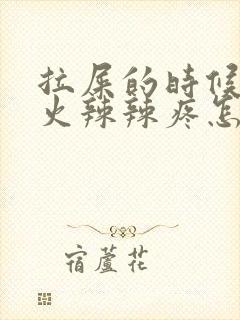 拉屎的时候
火辣辣疼怎
宿蘆花